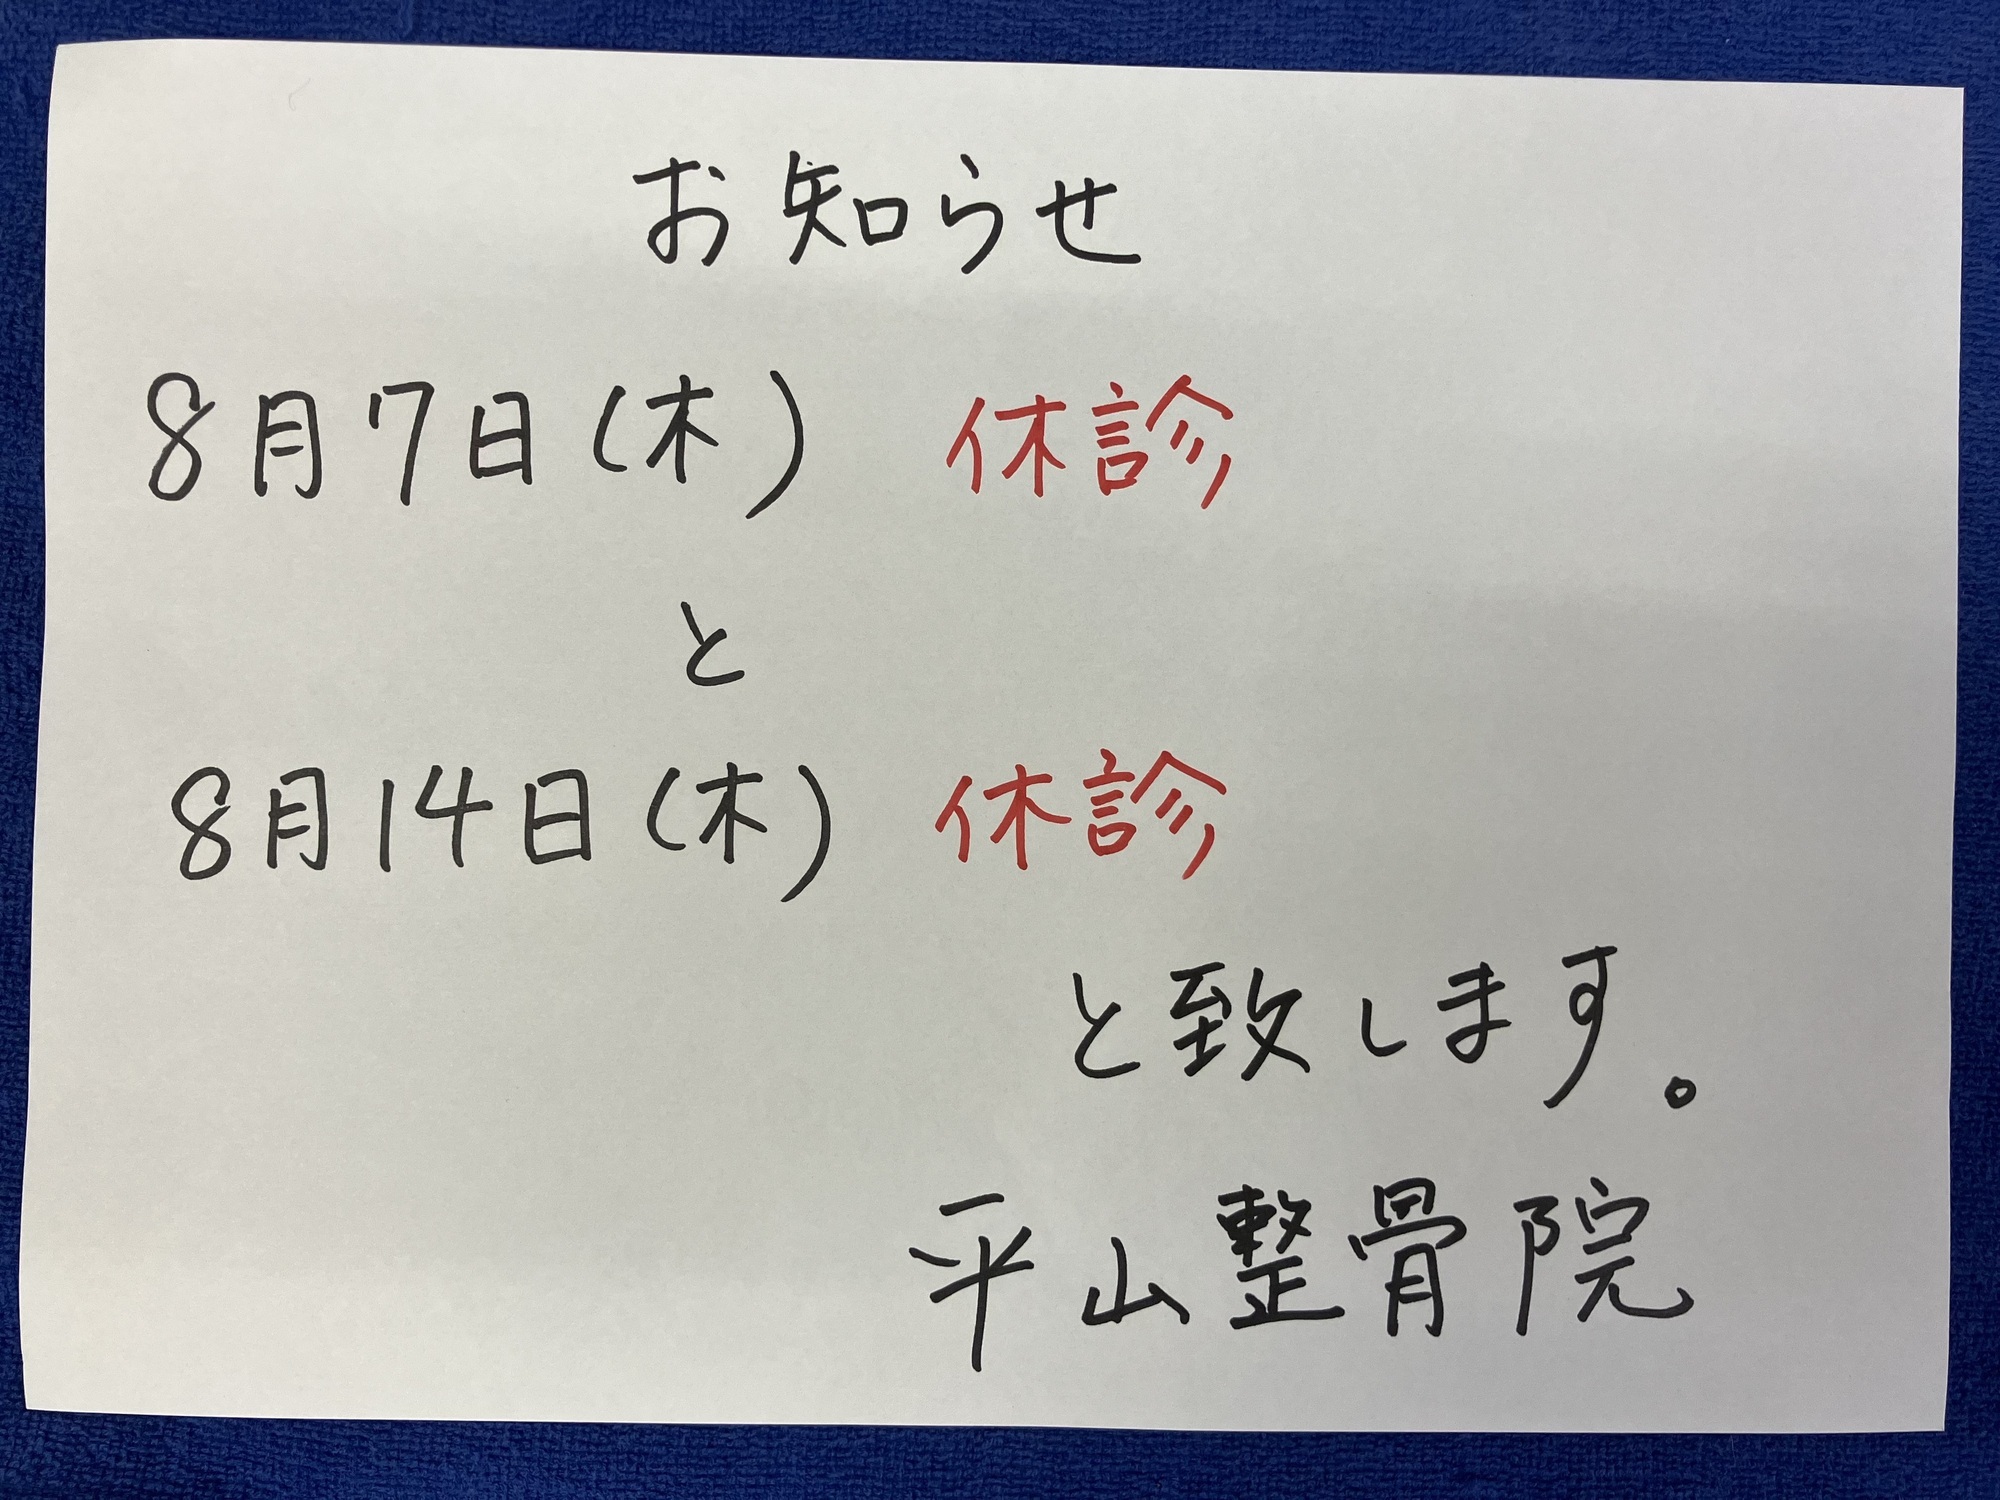 お知らせ
8月7日(木) 休診
と
8月14日(木) 休診
と致します。
平山整骨院